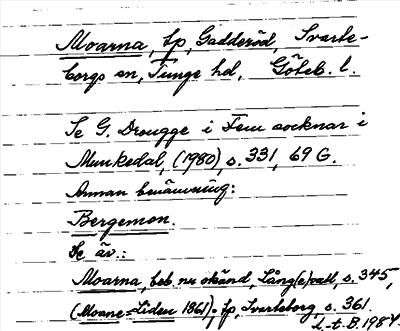 Moarna, tp, Gadderöd, Svarte-
borgs sn, Tunge hd, Göteb. l.
Se G. Drougge i Fem socknar i
Munkedal, (1980), s. 331, 69 G.
Annan benämning:
Bergemon.
Se äv.:
Moarna, beb. nu okänd Lång(e)vall, s. 345,
(Moane-Liden 1861), tp, Svarteborg, s. 361.
L-t. B. 1984